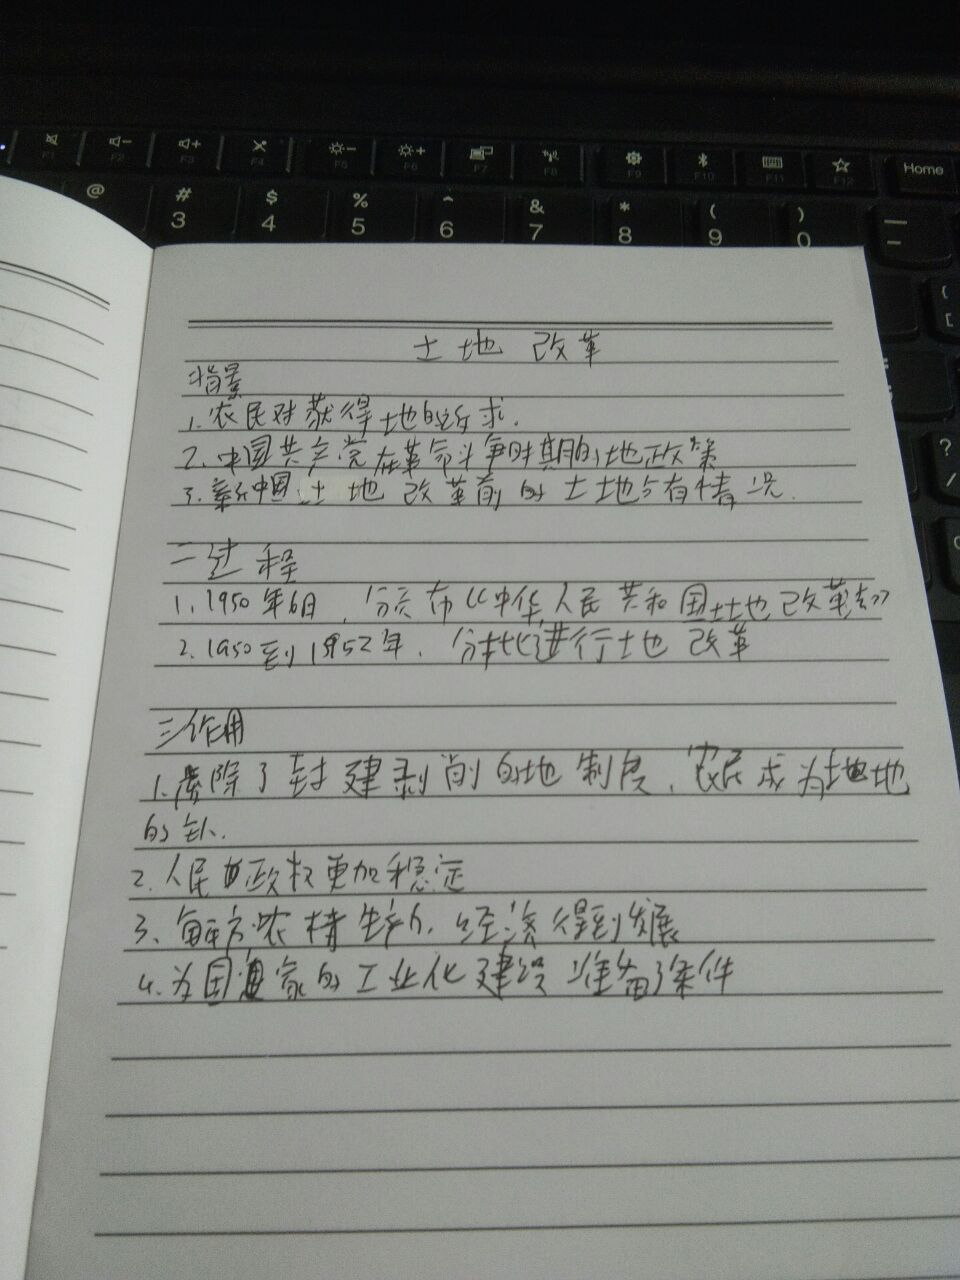 F1 F2 F3 F4 F5 F6 F7 F8 F9 F10 F11 F12 Home
@ # 3 $ 4 % 5 ^ 6 & 7 * 8 ( 9 ) 0
土地改革
背景
1.农民对获得地的诉求.
2.中国共产党在革命斗争时期的地政策
3.新中国土地改革前的土地占有情况.
二过程
1.1950年6日,公布《中华人民共和国土地改革法》
2.1950到1952年.分批进行土地改革
三作用
1.废除了封建剥削的地制度,农民成为土地
的主人.
2.人民政权更加稳定
3.解放农村生产力.经济得到发展
4.为国家的工业化建设准备了条件